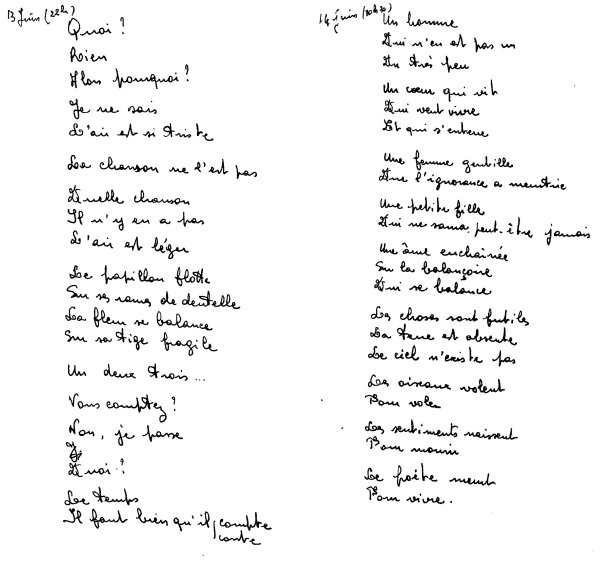 13 Juin (22h)
Quoi ?
Rien
Alors pourquoi ?
Je ne sais
L'air est si triste
La chanson ne l'est pas
Quelle chanson
Il n'y en a pas
L'air est léger
Le papillon flotte
Sur ses rames de dentelle
La fleur se balance
Sur sa tige fragile
Un deux trois ...
Vous comptez ?
Non, je passe
Quoi ?
Le temps
Il faut bien qu'il compte
conte
14 Juin (20h30)
Un homme
Qui n'en est pas un
Un très peu
Un cœur qui vit
Qui veut vivre
Et qui s'enterre
Une femme gentille
Que l'ignorance a meurtrie
Une petite fille
Qui ne saura peut-être jamais
Une âme enchaînée
Sur la balançoire
Qui se balance
Les choses sont futiles
La terre est absente
Le ciel n'existe pas
Les oiseaux volent
Pour voler
Les sentiments naissent
Pour mourir
Le poète meurt
Pour vivre.